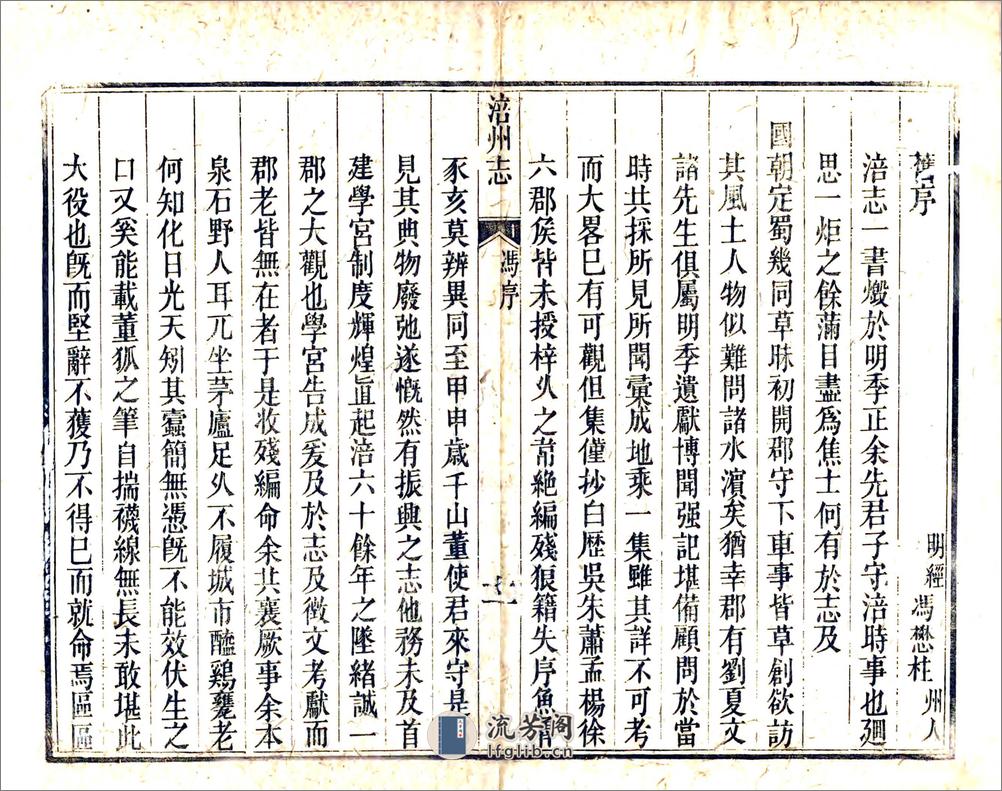 舊序
明經 馮懋柱 州人
涪志一書燬於明季正余先君子守涪時事也廻
思一炬之餘滿目盡為焦土何有於志及
國朝定蜀幾同草昧初開郡守下車事皆草創欲訪
其風土人物似難問諸水濵矣猶幸郡有劉夏文
諸先生俱屬明季遺獻博聞强記堪備顧問於當
時共採所見所聞彙成地乘一集雖其詳不可考
而大畧巳有可觀但集僅抄白歷吳朱蕭孟楊徐
六郡侯皆未授梓乆之帋絶編殘狼籍失序魚
豕亥莫辨異同至甲申歲千山董使君來守是
見其典物廢弛遂慨然有振興之志他務未及首
建學宮制度輝煌直起涪六十餘年之墜緒誠一
郡之大觀也學宮告成爰及於志及徵文考獻而
郡老皆無在者于是收殘編命余共襄厥事余本
泉石野人耳兀坐茅廬足乆不履城市醯鷄甕老
何知化日光天矧其蠧簡無憑旣不能效伏生之
口又奚能載董狐之筆自揣襪線無長未敢堪此
大役也旣而堅辭不獲乃不得巳而就命焉區區
涪州志
馮序
十一
流芳阁
lfglib.cn